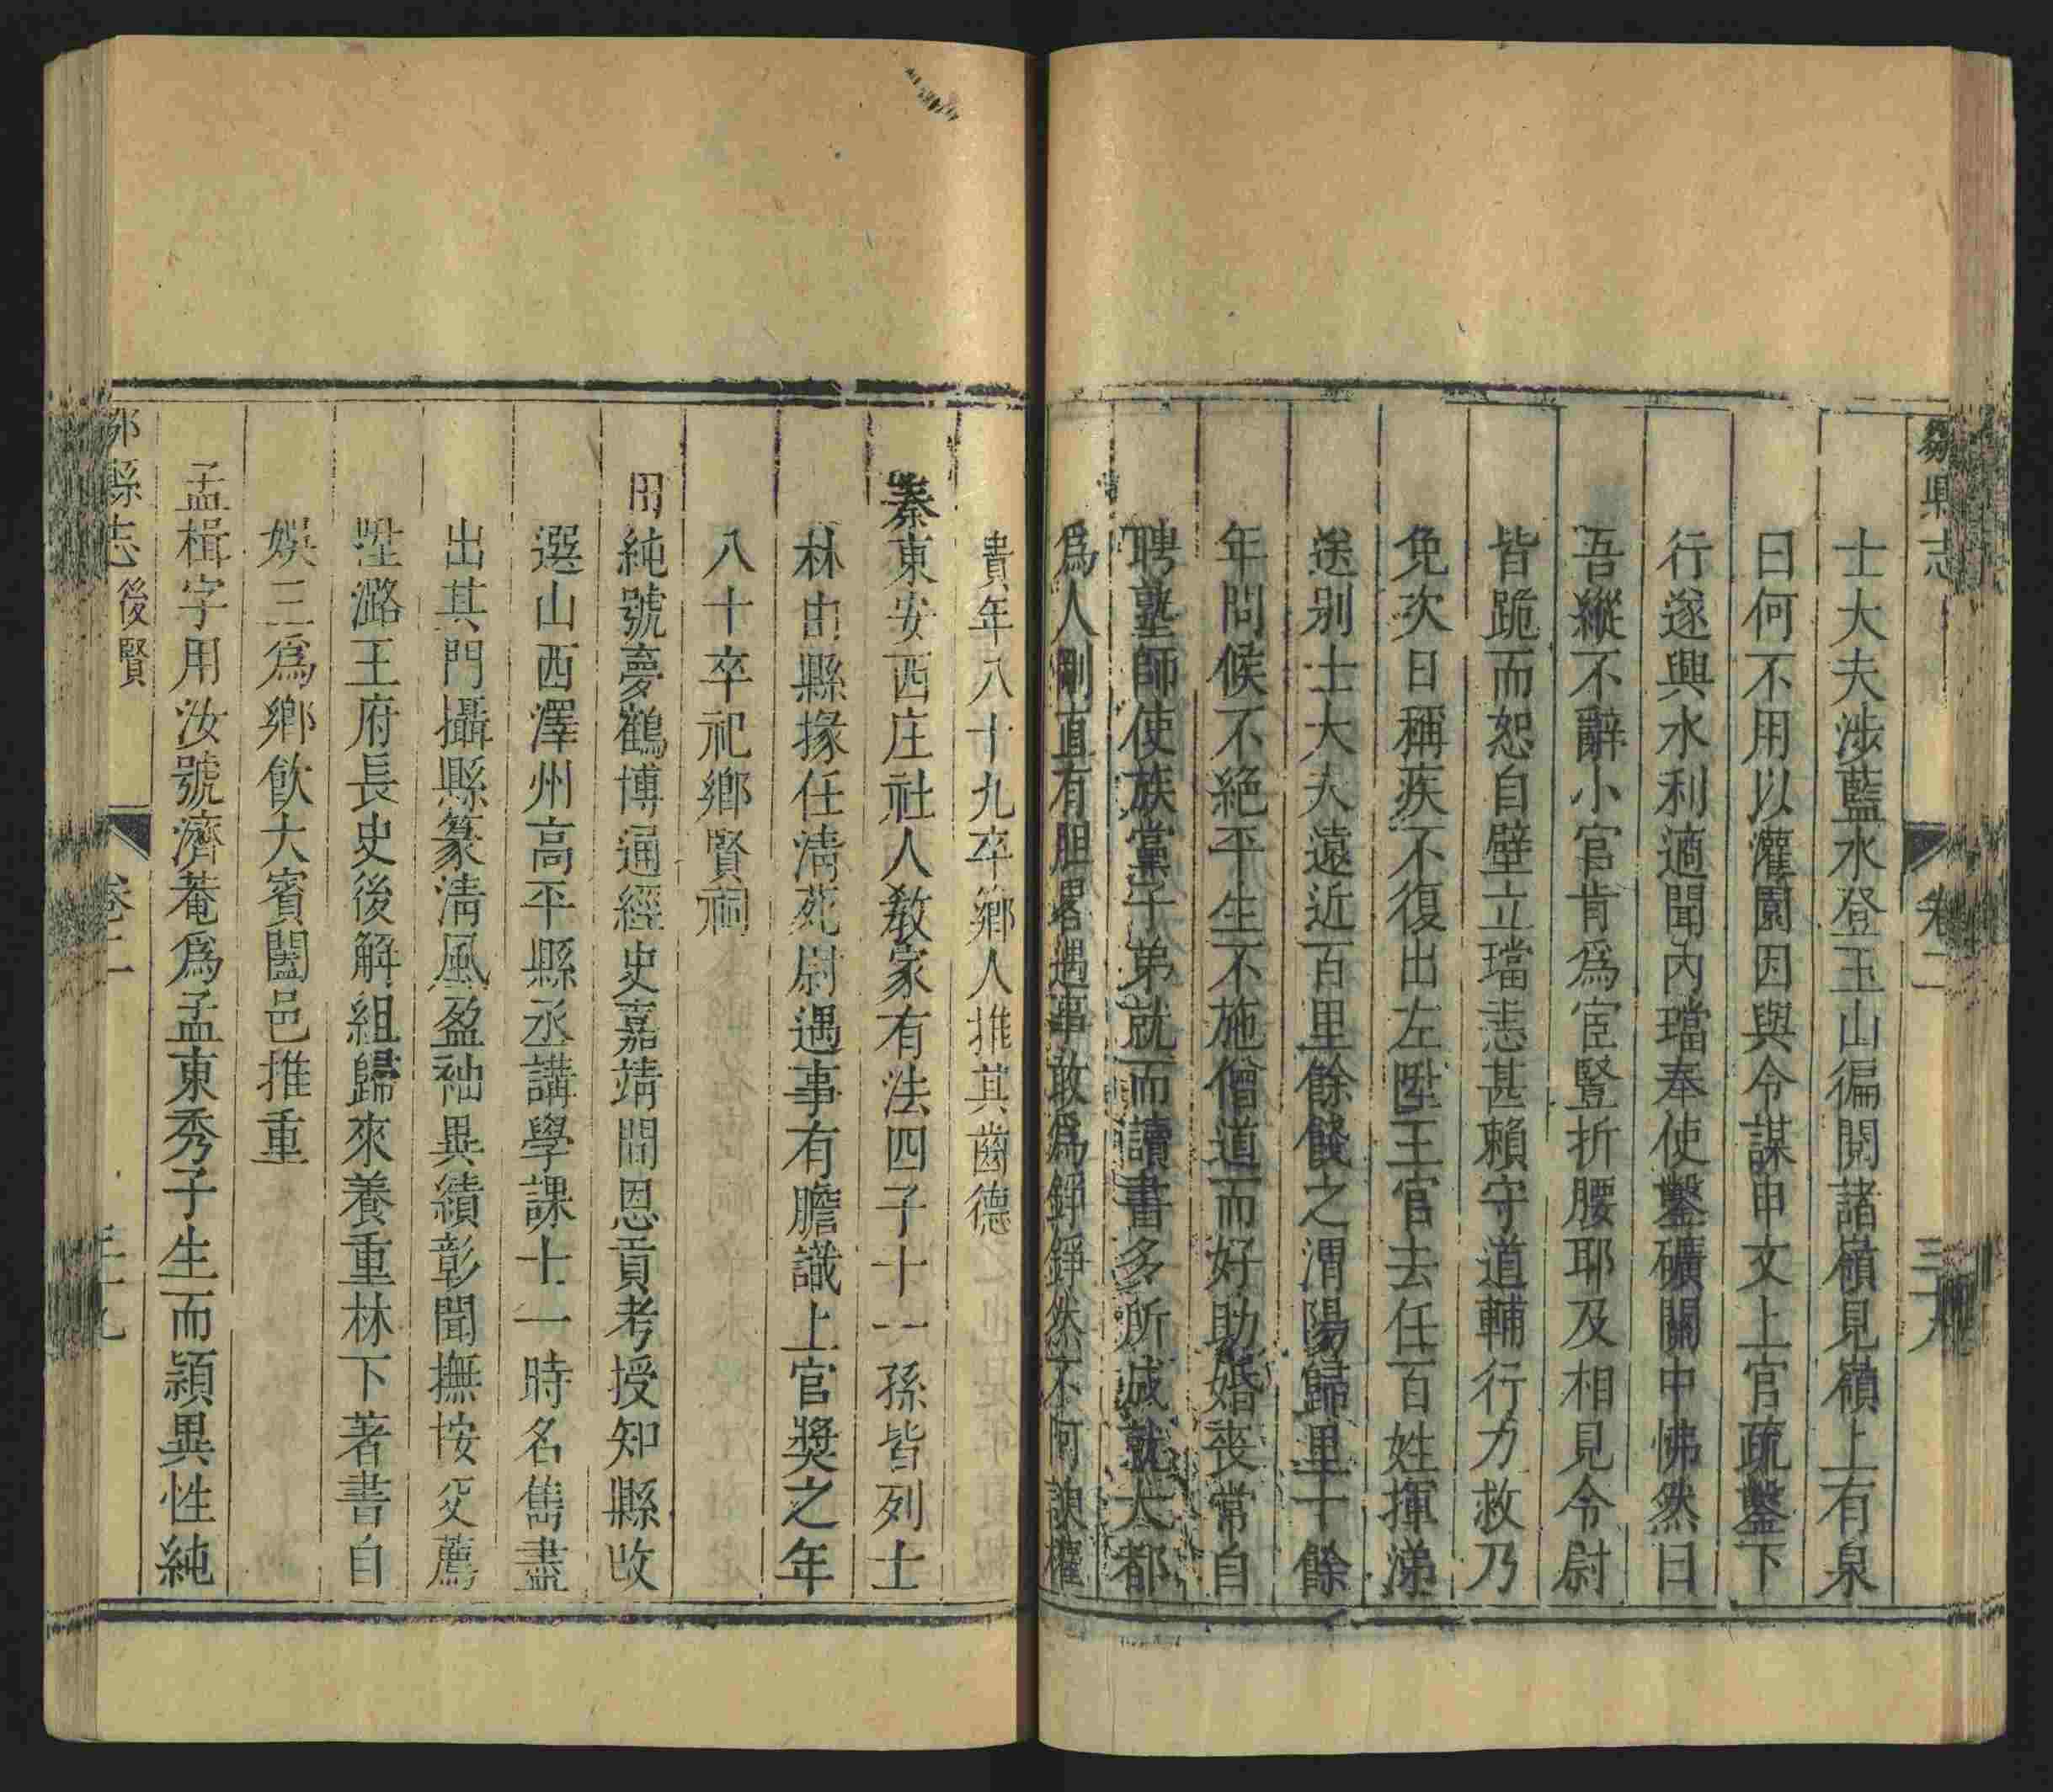 鄒縣志
卷二
三十八
士大夫涉藍水登玉山徧閱諸嶺見嶺上有泉
曰何不用以灌園因與令謀申文上官疏鑿下
行遂興水利適聞內璫奉使鑿礦關中怫然曰
吾縱不辭小官肯爲宦豎折腰耶及相見令尉
皆跪而恕自壁立璫恚甚賴守道輔行力救乃
免次日稱疾不復出左陞王官去任百姓揮涕
送別士大夫遠近百里餘餞之渭陽歸里十餘
年問候不絕平生不施僧道而好助婚喪常自
聘塾師使族黨子弟就而讀書多所成就大都
爲人剛直有胆畧遇事敢爲錚錚然不阿諛權
貴年八十九卒鄉人推其齒德
秦東安西庄社人教家有法四子十一孫皆列士
林由縣掾任淸苑尉遇事有膽識上官獎之年
八十卒祀鄉賢祠
田純號夢鶴博通經史嘉靖間恩貢考授知縣改
選山西澤州高平縣丞講學課士一時名儁盡
出其門攝縣篆淸風盈袖異績彰聞撫按交薦
陞潞王府長史後解組歸來養重林下著書自
娛三爲鄉飮大賓闔邑推重
孟楫字用汝號濟菴爲孟東秀子生而頴異性純
縣志
後賢
卷二